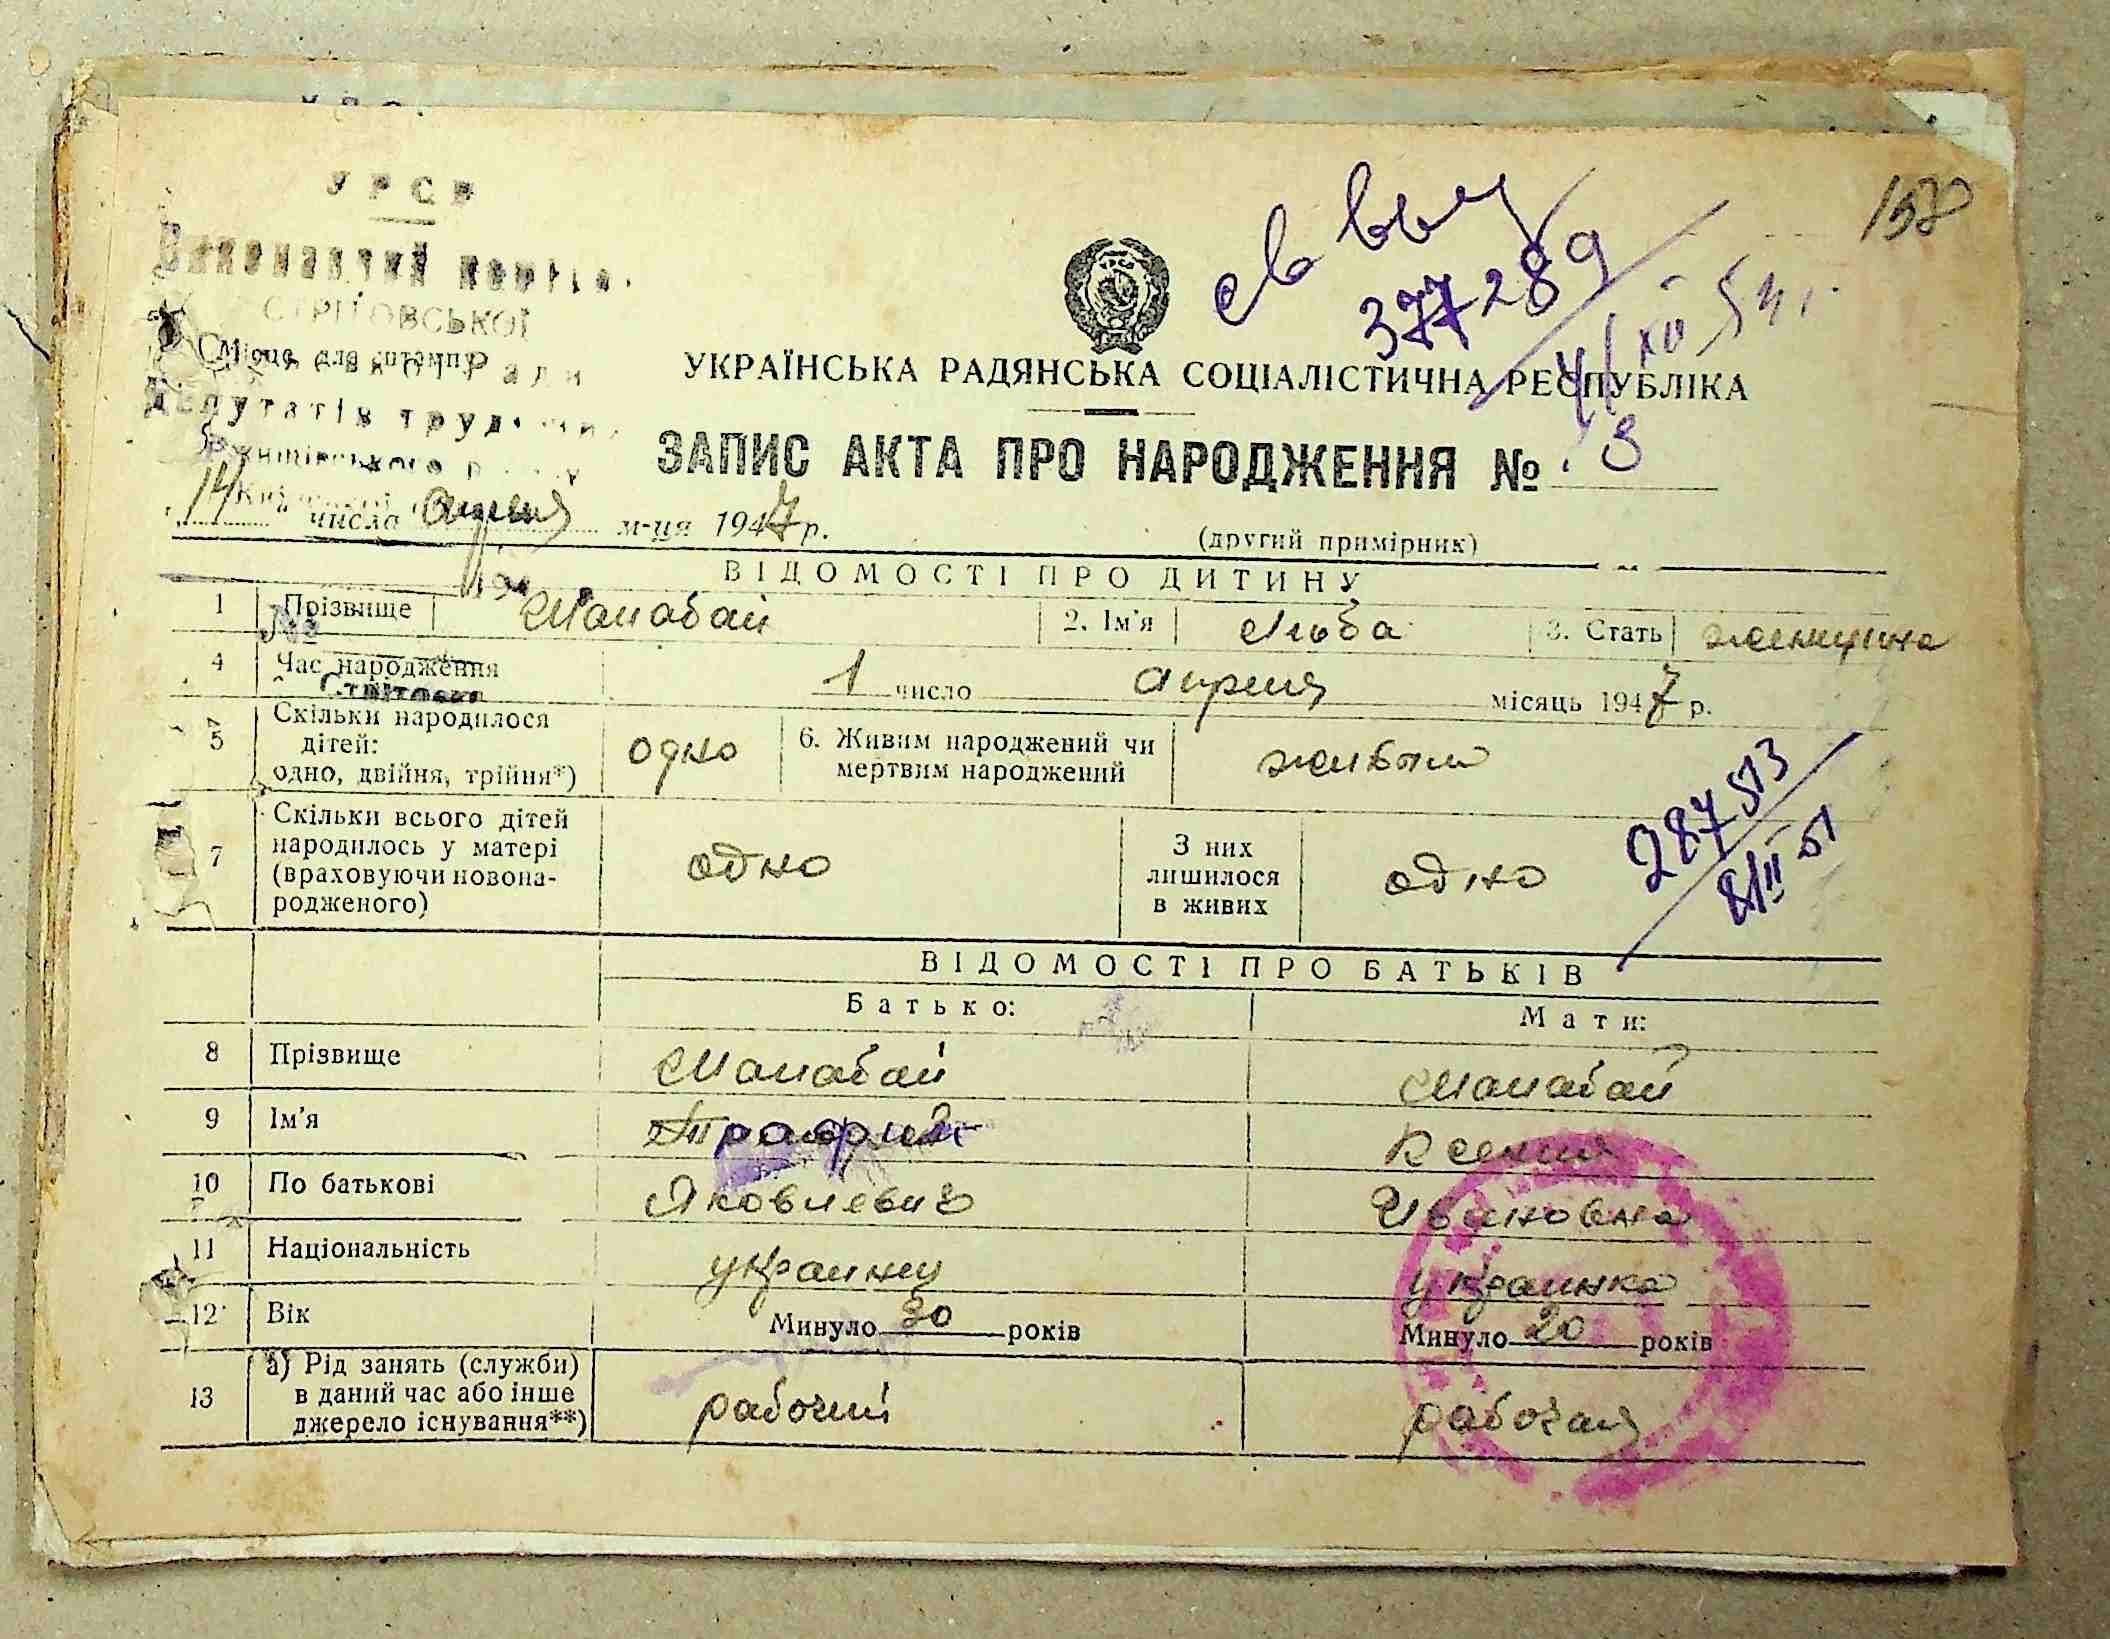 158
УРСР
Виконавчий комітет
СТРІТОВСЬКОЇ
Місце для штампу
Ради
Депутатів трудящих
св выд
377289
4/XII 54 г.
УКРАЇНСЬКА РАДЯНСЬКА СОЦІАЛІСТИЧНА РЕСПУБЛІКА
ЗАПИС АКТА ПРО НАРОДЖЕННЯ № 8
„14“ числа апреля м-ця 1947 р.
(другий примірник)
ВІДОМОСТІ ПРО ДИТИНУ
1 Прізвище Шалабай 2. Ім'я Люба 3. Стать женщина
4 Час народження 1 число апреля місяць 1947 р.
5 Скільки народилося дітей: одно, двійня, трійня*) одно 6. Живим народжений чи мертвим народжений живым
7 Скільки всього дітей народилось у матері (враховуючи новонародженого) одно З них лишилося в живих одно
287513
8/II 51
ВІДОМОСТІ ПРО БАТЬКІВ
Батько: Мати:
8 Прізвище Шалабай Шалабай
9 Ім'я Ксения
10 По батькові Яковлевич Ивановна
11 Національність украинец украинка
12 Вік Минуло 30 років Минуло 20 років
13 а) Рід занять (служби) в даний час або інше джерело існування**) рабочий рабочая